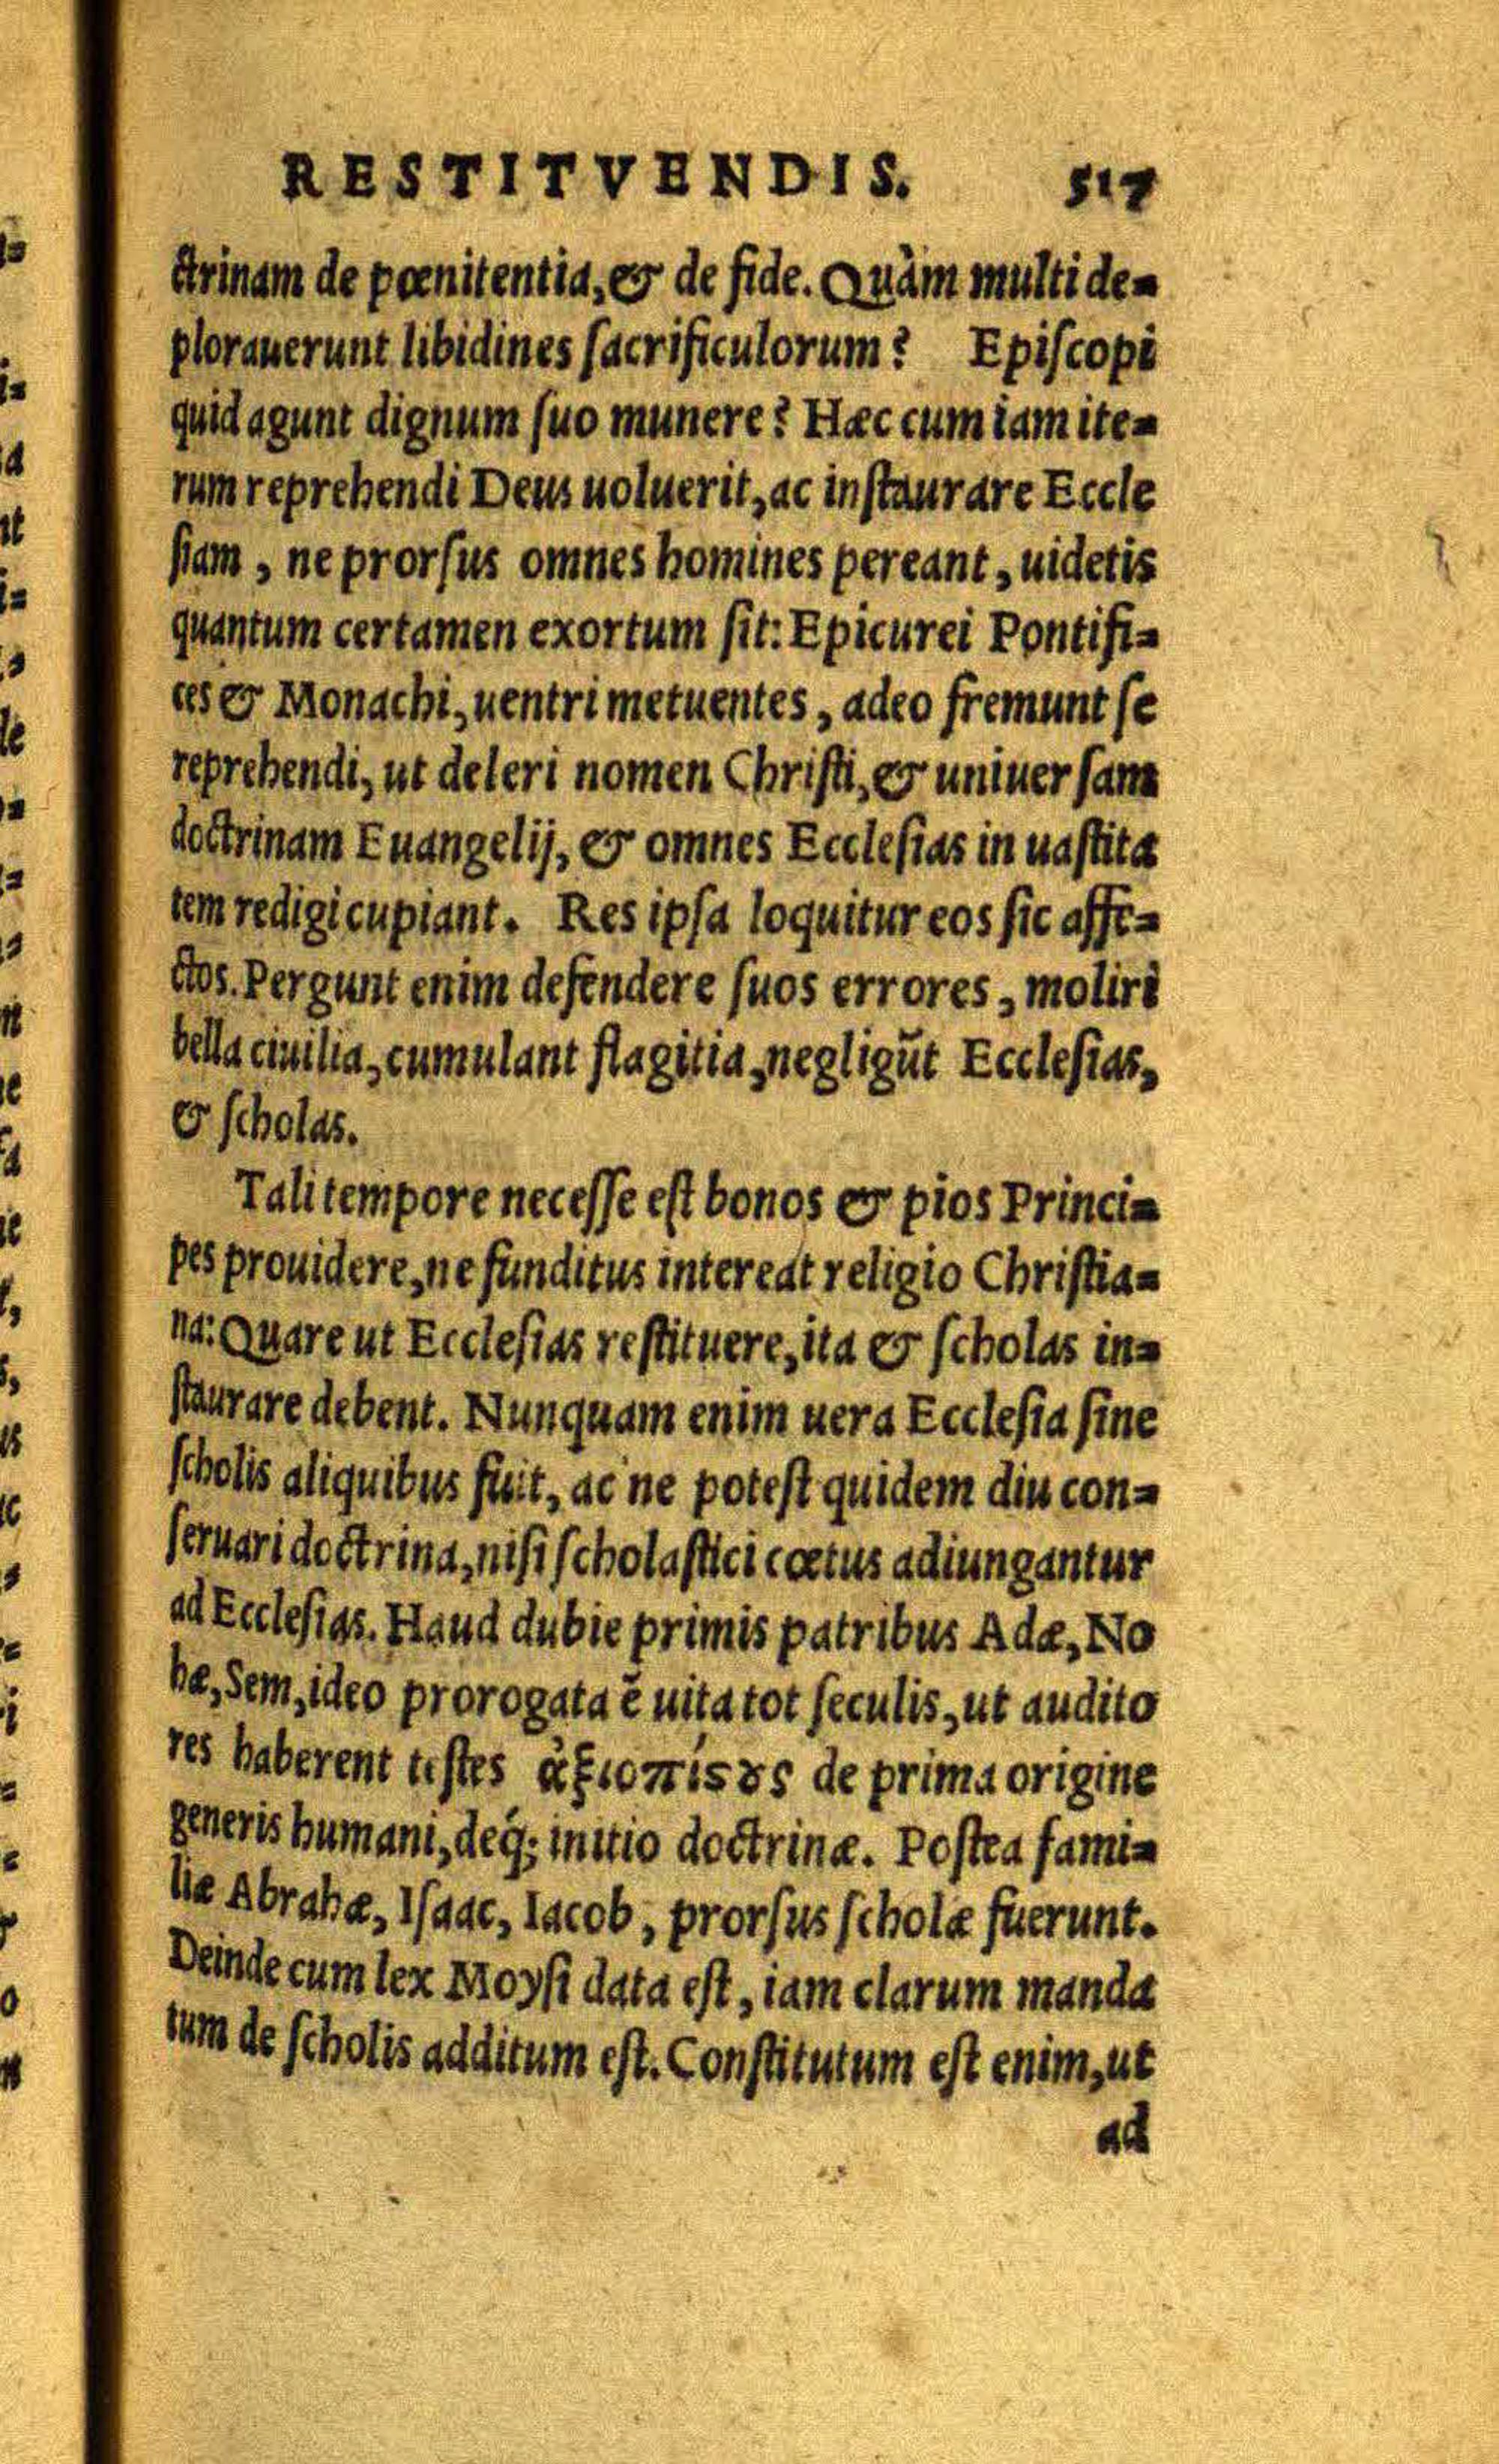 RESTITVENDIS. 517
ctrinam de pœnitentia, & de fide. Quàm multi de=
plorauerunt libidines ſacrificulorum? Epiſcopi
quid agunt dignum ſuo munere? Hæc cum iam ite=
rum reprehendi Deus uoluerit, ac inſtaurare Eccle
ſiam, ne prorſus omnes homines pereant, uidetis
quantum certamen exortum ſit: Epicurei Pontifi=
ces & Monachi, uentri metuentes, adeo fremunt ſe
reprehendi, ut deleri nomen Chriſti, & uniuerſam
doctrinam Euangelij, & omnes Eccleſias in uaſtita
tem redigi cupiant. Res ipſa loquitur eos ſic affe=
ctos. Pergunt enim defendere ſuos errores, moliri
bella ciuilia, cumulant flagitia, negligūt Eccleſias,
& ſcholas.
Tali tempore neceſſe eſt bonos & pios Princi=
pes prouidere, ne funditus intereat religio Chriſtia=
na: Quare ut Eccleſias reſtituere, ita & ſcholas in=
ſtaurare debent. Nunquam enim uera Eccleſia ſine
ſcholis aliquibus fuit, ac ne poteſt quidem diu con=
ſeruari doctrina, niſi ſcholaſtici cœtus adiungantur
ad Eccleſias. Haud dubie primis patribus Adæ, No
hæ, Sem, ideo prorogata ē uita tot ſeculis, ut audito
res haberent teſtes ἀξιοπίϛȣς de prima origine
generis humani, deq́; initio doctrinæ. Poſtea fami=
liæ Abrahæ, Iſaac, Iacob, prorſus ſcholæ fuerunt.
Deinde cum lex Moyſi data eſt, iam clarum manda
tum de ſcholis additum eſt. Conſtitutum eſt enim, ut
ad